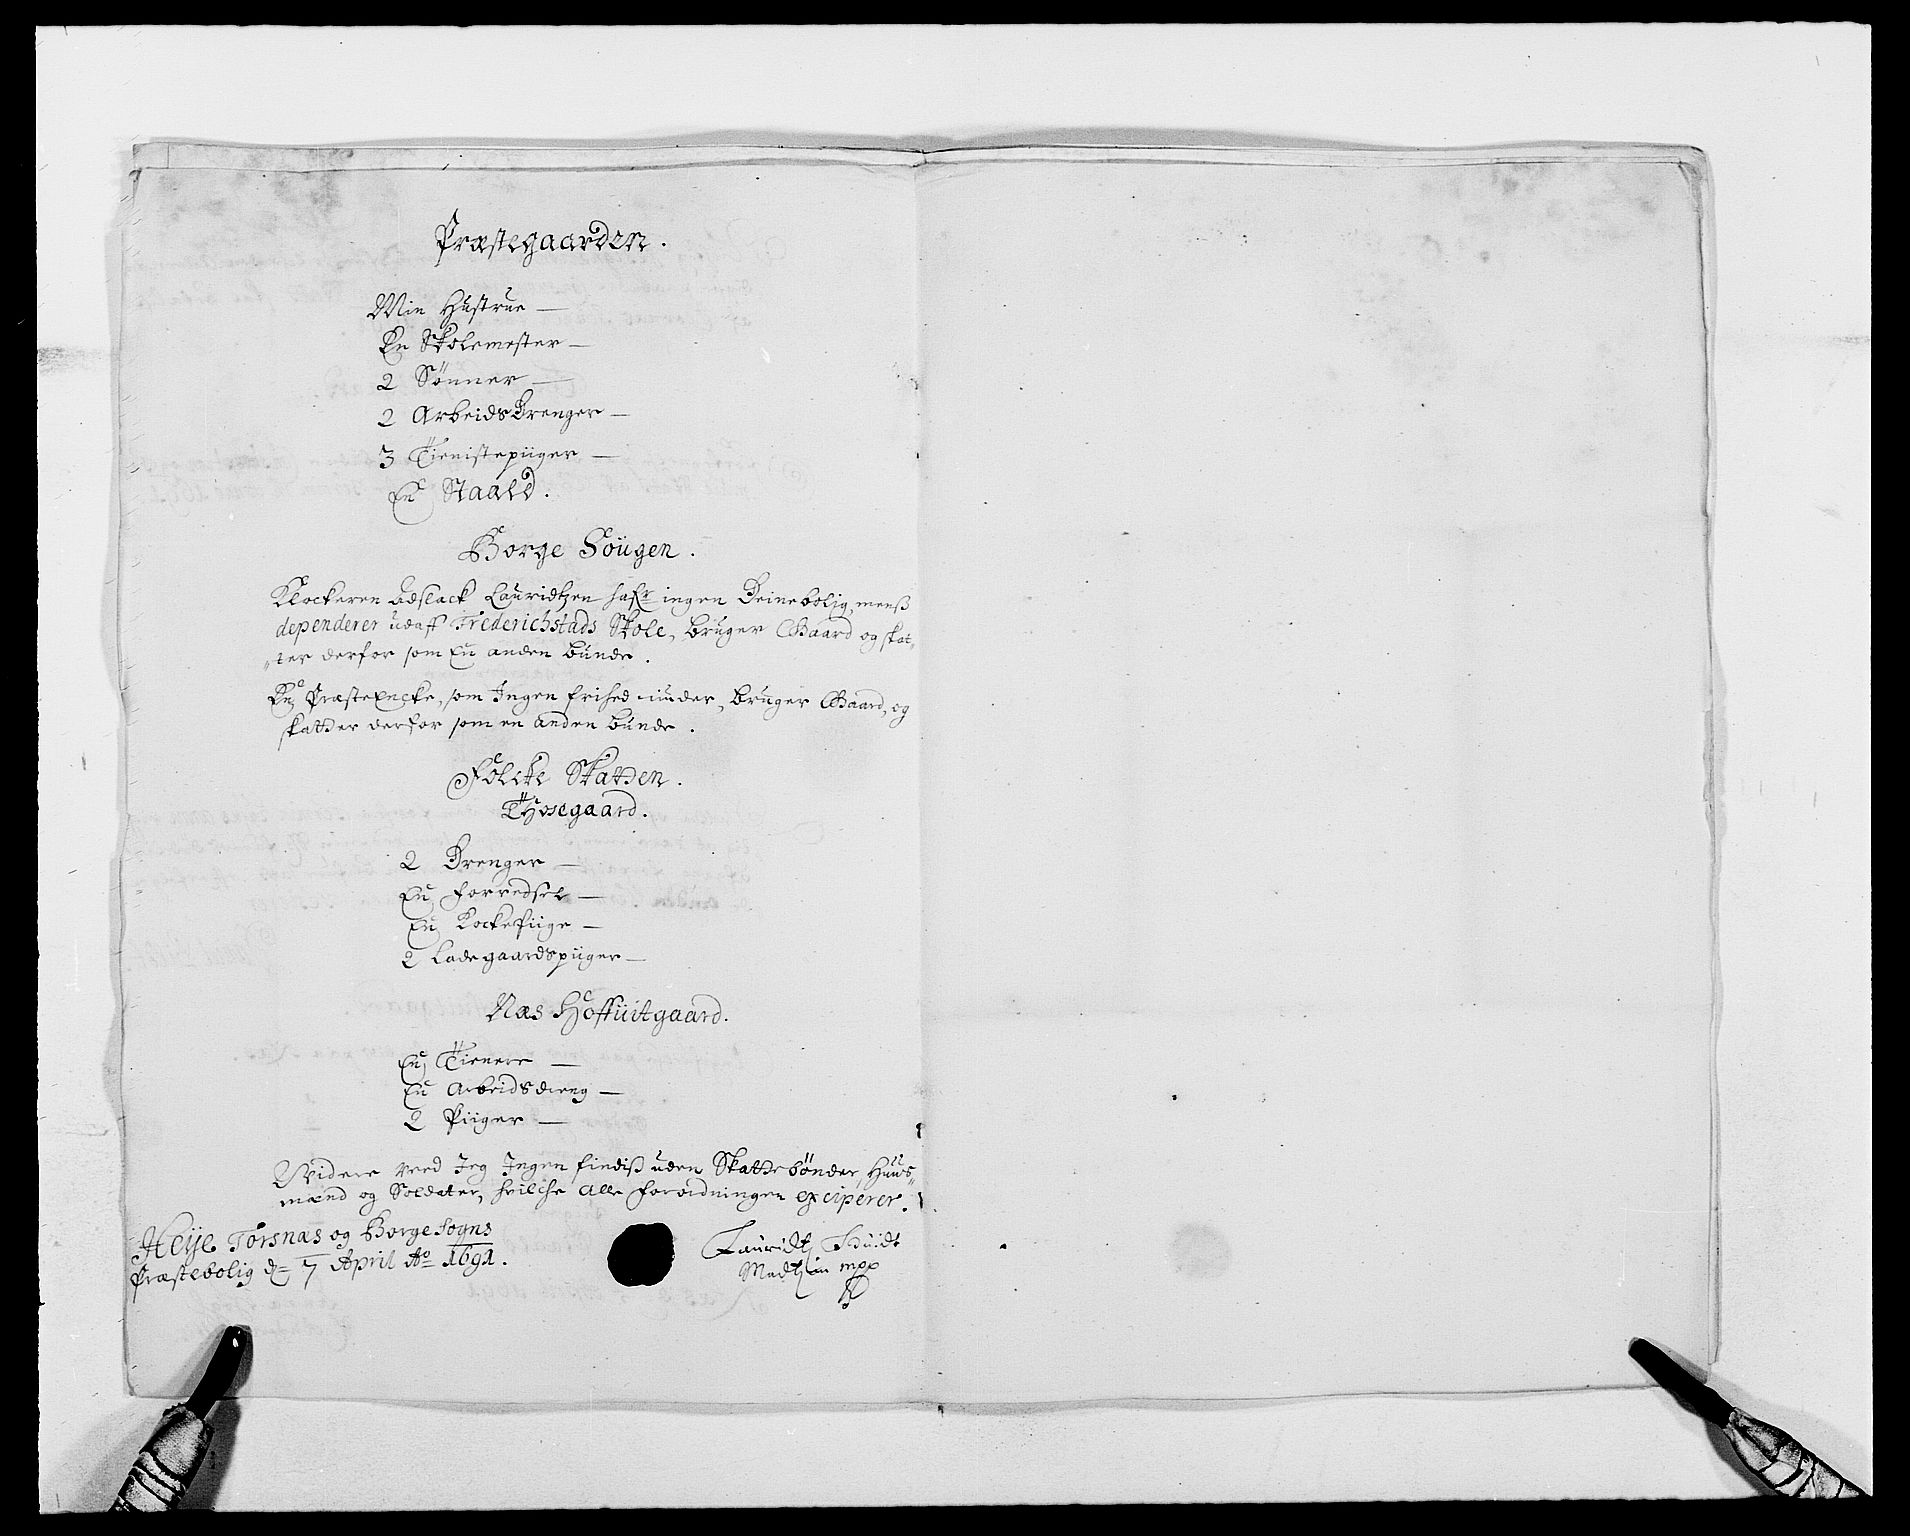 Præstegaarden.
Min Hustrue —
En Skolemester —
2 Sönner —
2 ArbeidsDrenger —
3 Tienistepiiger —
En Staald.
Borge Sougen.
Klockeren Adslack Lauridtzen hafr ingen Deinebolig, menß
dependerer udaff Frederichstads Skole, bruger Gaard og skat,,
,,ter derfor som En anden bunde.
En PræsteEncke, som Ingen frihed niuder, bruger Gaard, og
skatter derfor som en anden bunde.
Folcke Skatten.
Thosegaard.
2 Drenger —
En Forredsel —
En Kockepiige —
2 Ladegaardspiiger —
Næs Hoffuitgaard.
En Tienere —
En Arbeidsdreng —
2 Piiger —
Widere veed Jeg Ingen findiß uden Skattebönder, Huus,,
mænd og Soldater, hvilche alle forordningen exciperer.
Heije Torsnæs og Borge Sogns
Præstebolig d. 7 April Ao 1691.
Lauridtz Huidt
Madtzen mpp